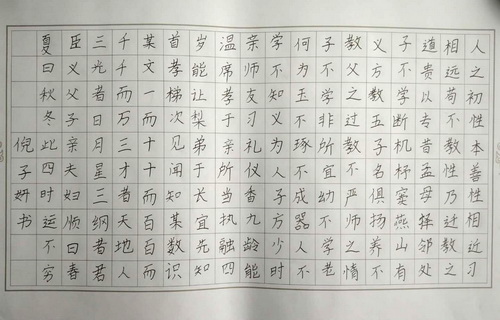 人之初性本善性相近习
相远苟不教性乃迁教之
道贵以专昔孟母择邻处
子不学断机杼窦燕山有
义方教五子名俱扬养不
教父之过教不严师之惰
子不学非所宜幼不学老
何为玉不琢不成器人不
学不知义为人子方少时
亲师友习礼仪香九龄能
温席孝于亲所当执融四
岁能让梨弟于长宜先知
首孝悌次见闻知某数识
某文一而十十而百百而
千千而万三才者天地人
三光者日月星三纲者君
臣义父子亲夫妇顺曰春
夏曰秋冬此四时运不穷
倪子妍书